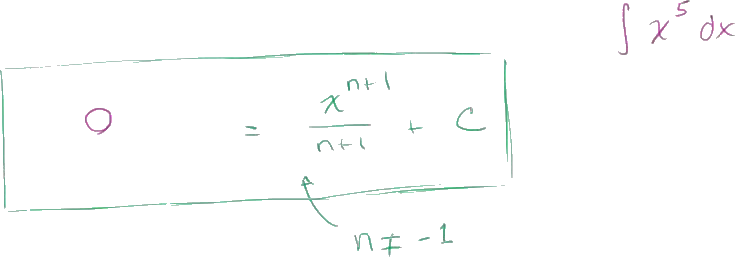 ∫ x^5 dx
O = x^{n+1}/(n+1) + C
n ≠ -1